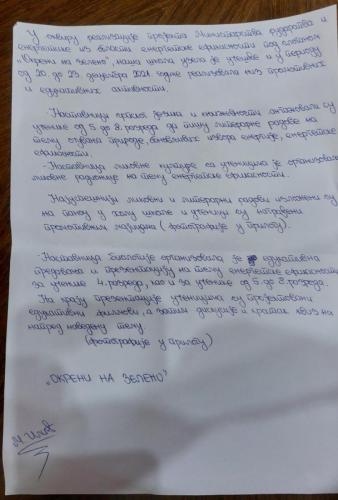 У оквиру реализације пројекта Министарства рударства и
енергетике из области енергетске ефикасности под слоганом
„Окрени на зелено", наша школа узела је учешће и у периоду
од 20. до 29. децембра 2021. године реализовала низ промотивних
и едукативних активности.
-Наставници српског језика и књижевности ангажовали су
ученике од 5. до 8. разреда да пишу литерарне радове на
тему очувања природе, обновљивих извора енергије, енергетске
ефикасности.
-Наставница ликовне културе са ученицима је организовала
ликовне радионице на тему енергетске ефикасности.
Најуспешнији ликовни и литерарни радови изложени су
на паноу у холу школе и ученици су награђени
промотивним мајицама (фотографије у прилогу).
-Наставница биологије организовала је едукативна
предавања и презентацију на тему енергетске ефикасности
за ученике 4. разреда, као и за ученике од 5. до 8. разреда.
На крају презентације ученицима су пројектовани
едукативни филмови, а затим дискусије и кратак квиз на
напред наведену тему.
(фотографије у прилогу)
„ОКРЕНИ НА ЗЕЛЕНО"